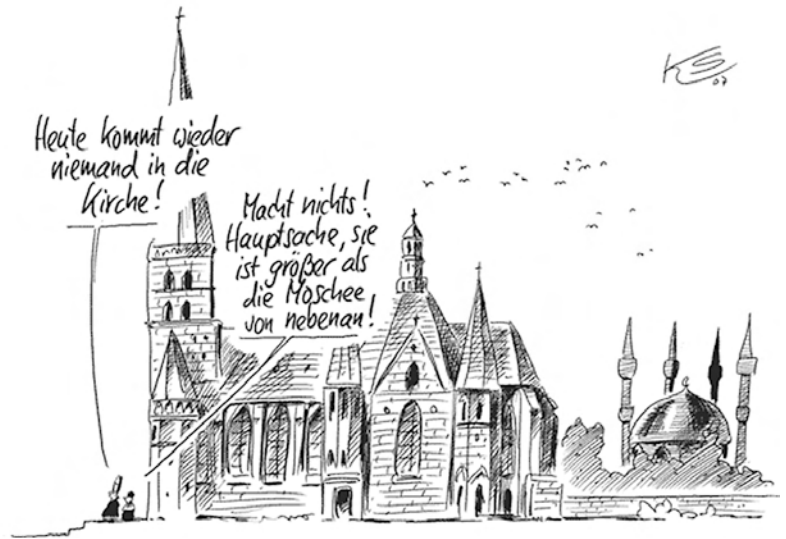 Heute kommt wieder
niemand in die
Kirche!
Macht nichts!
Hauptsache, sie
ist größer als
die Moschee
von nebenan!
KS
07